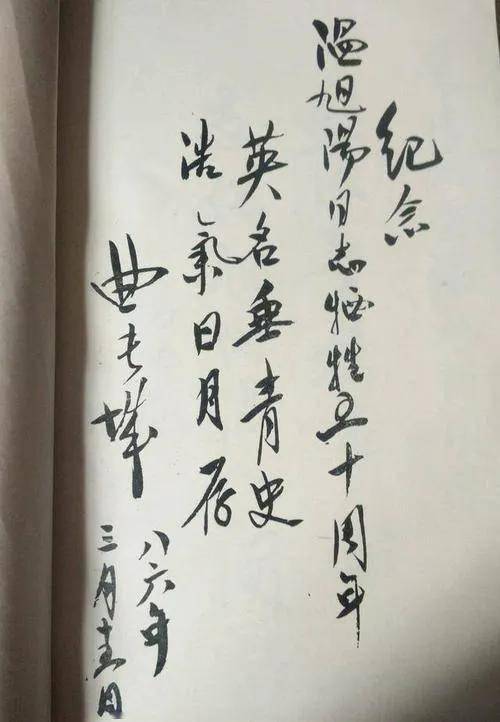 纪念
温旭陽同志牺牲五十周年
英名垂青史
浩氣日月存
曲长
八六年
三月 日